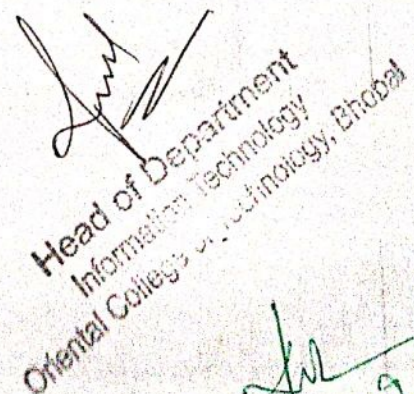 Head of Department
Information Technology
Oriental College of Technology, Bhopal